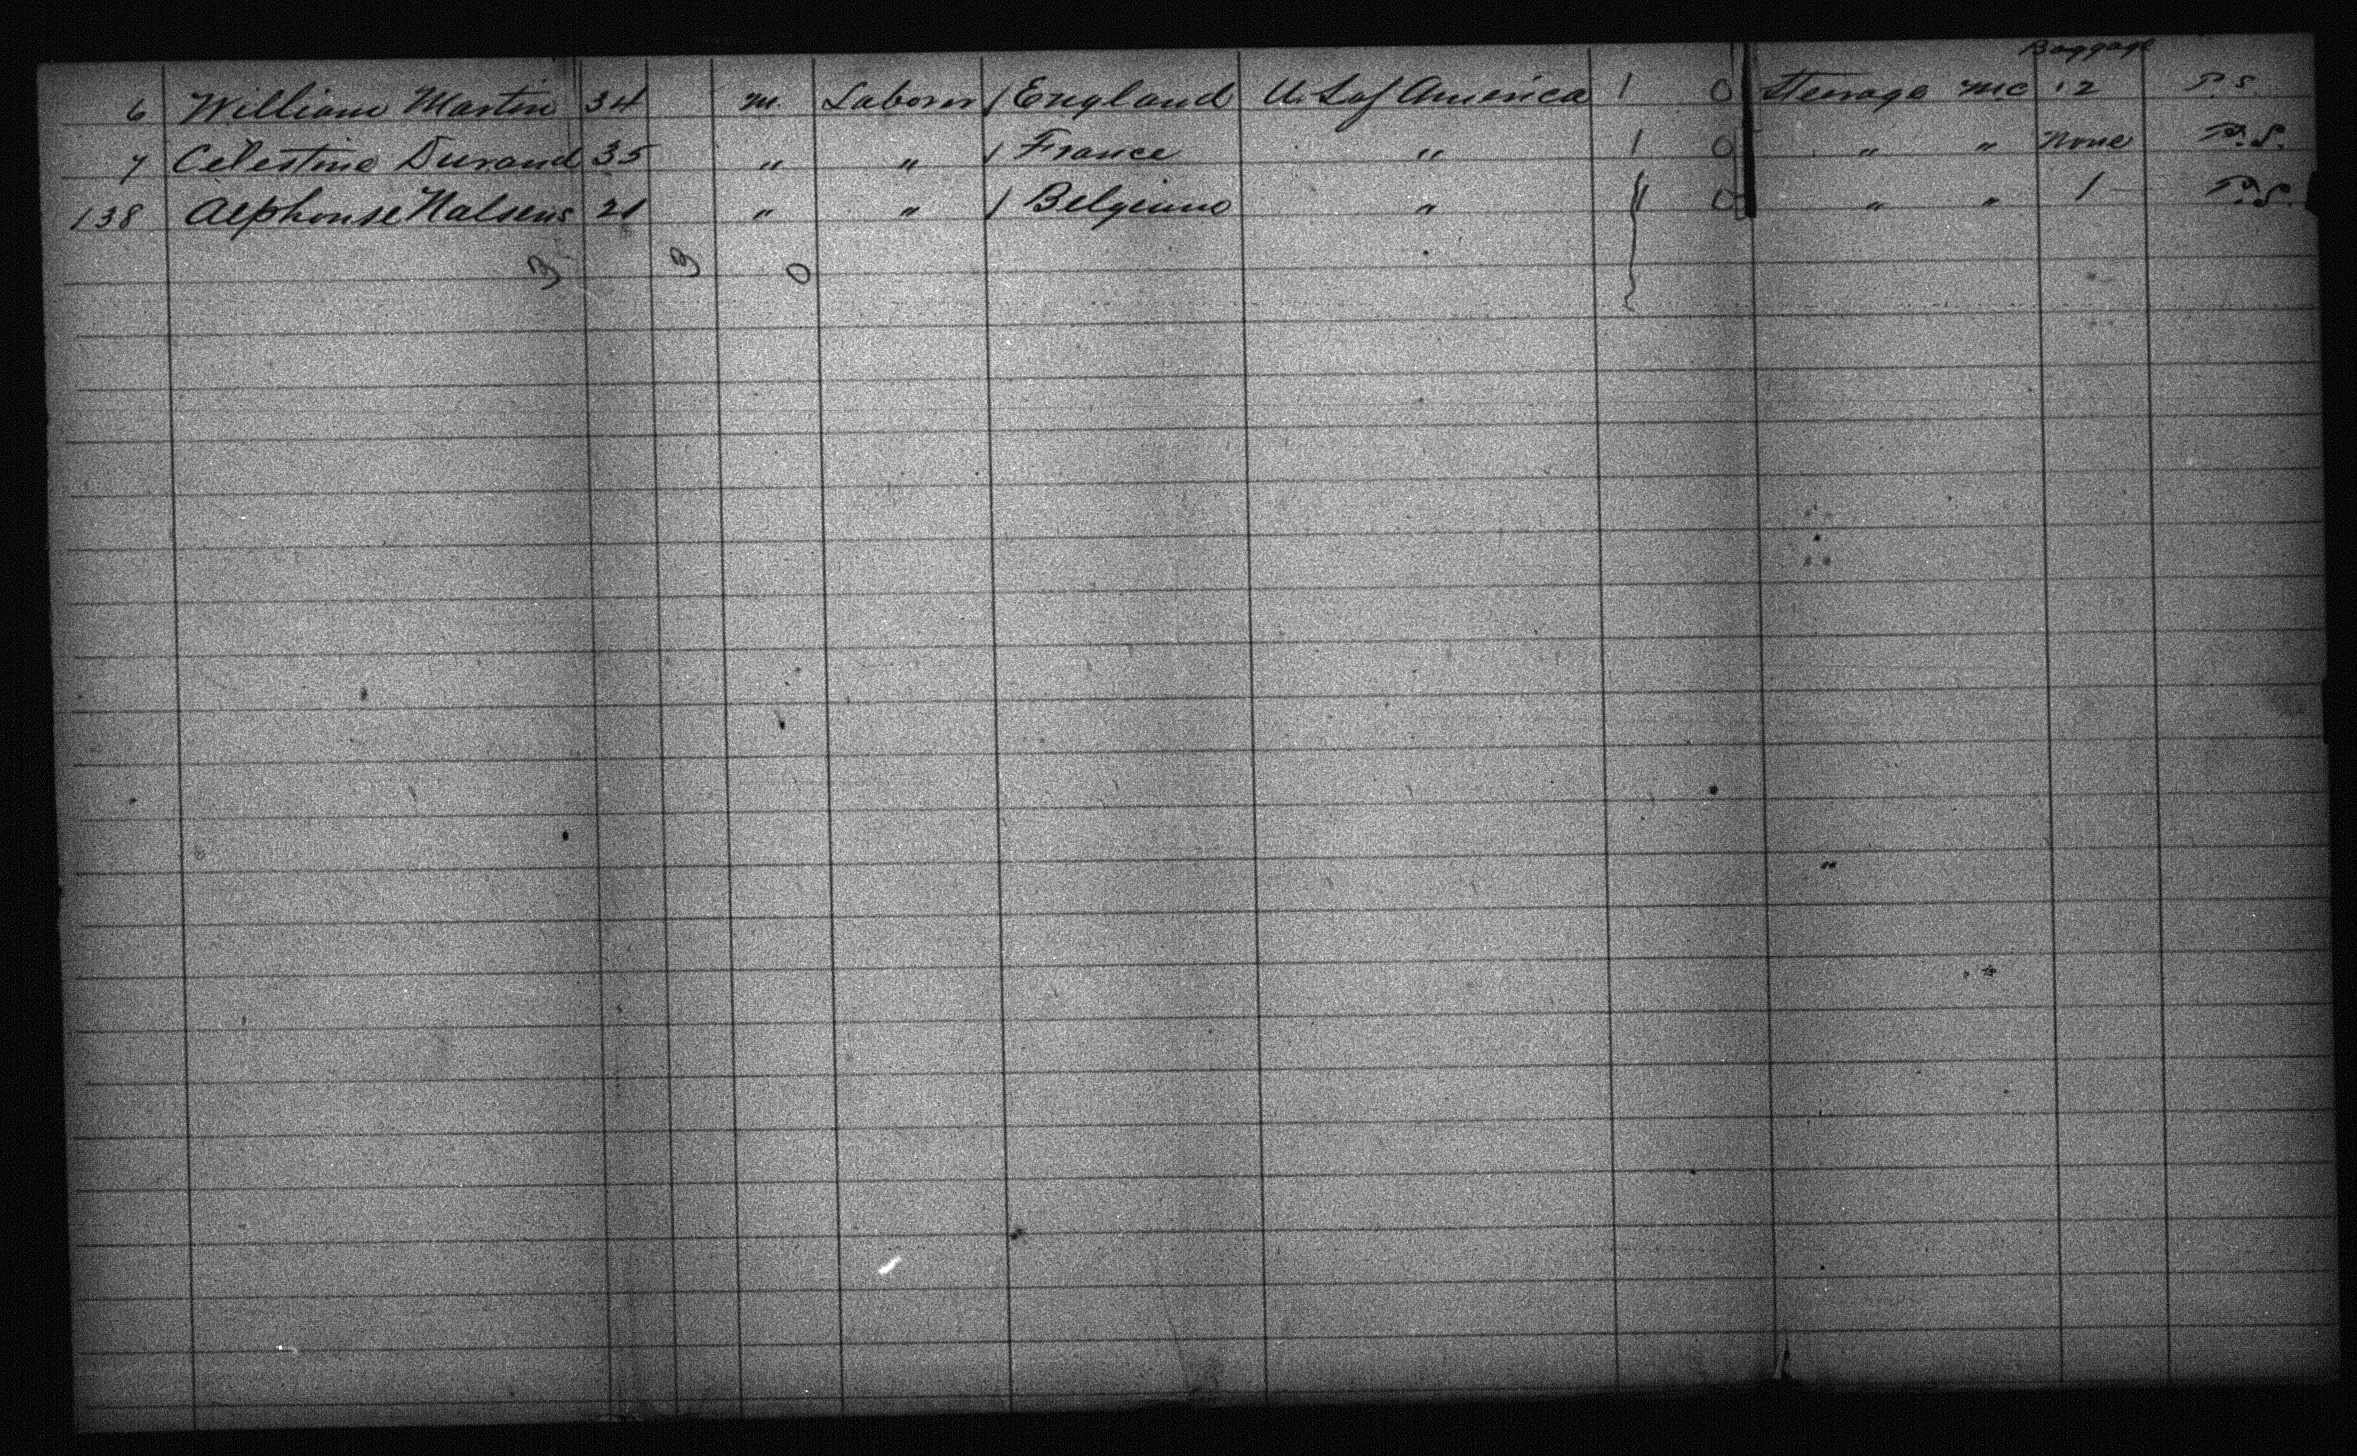 Baggage
6 William Martin 34 m. Laborer / England U. S. of America 1 0 Steerage m.c 2 P. S.
7 Celestine Durand 35 " " / France " 1 0 " " None P. S.
138 Alphonse 21 " " / Belgium " 1 0 " " 1 P. S.
3 3 0